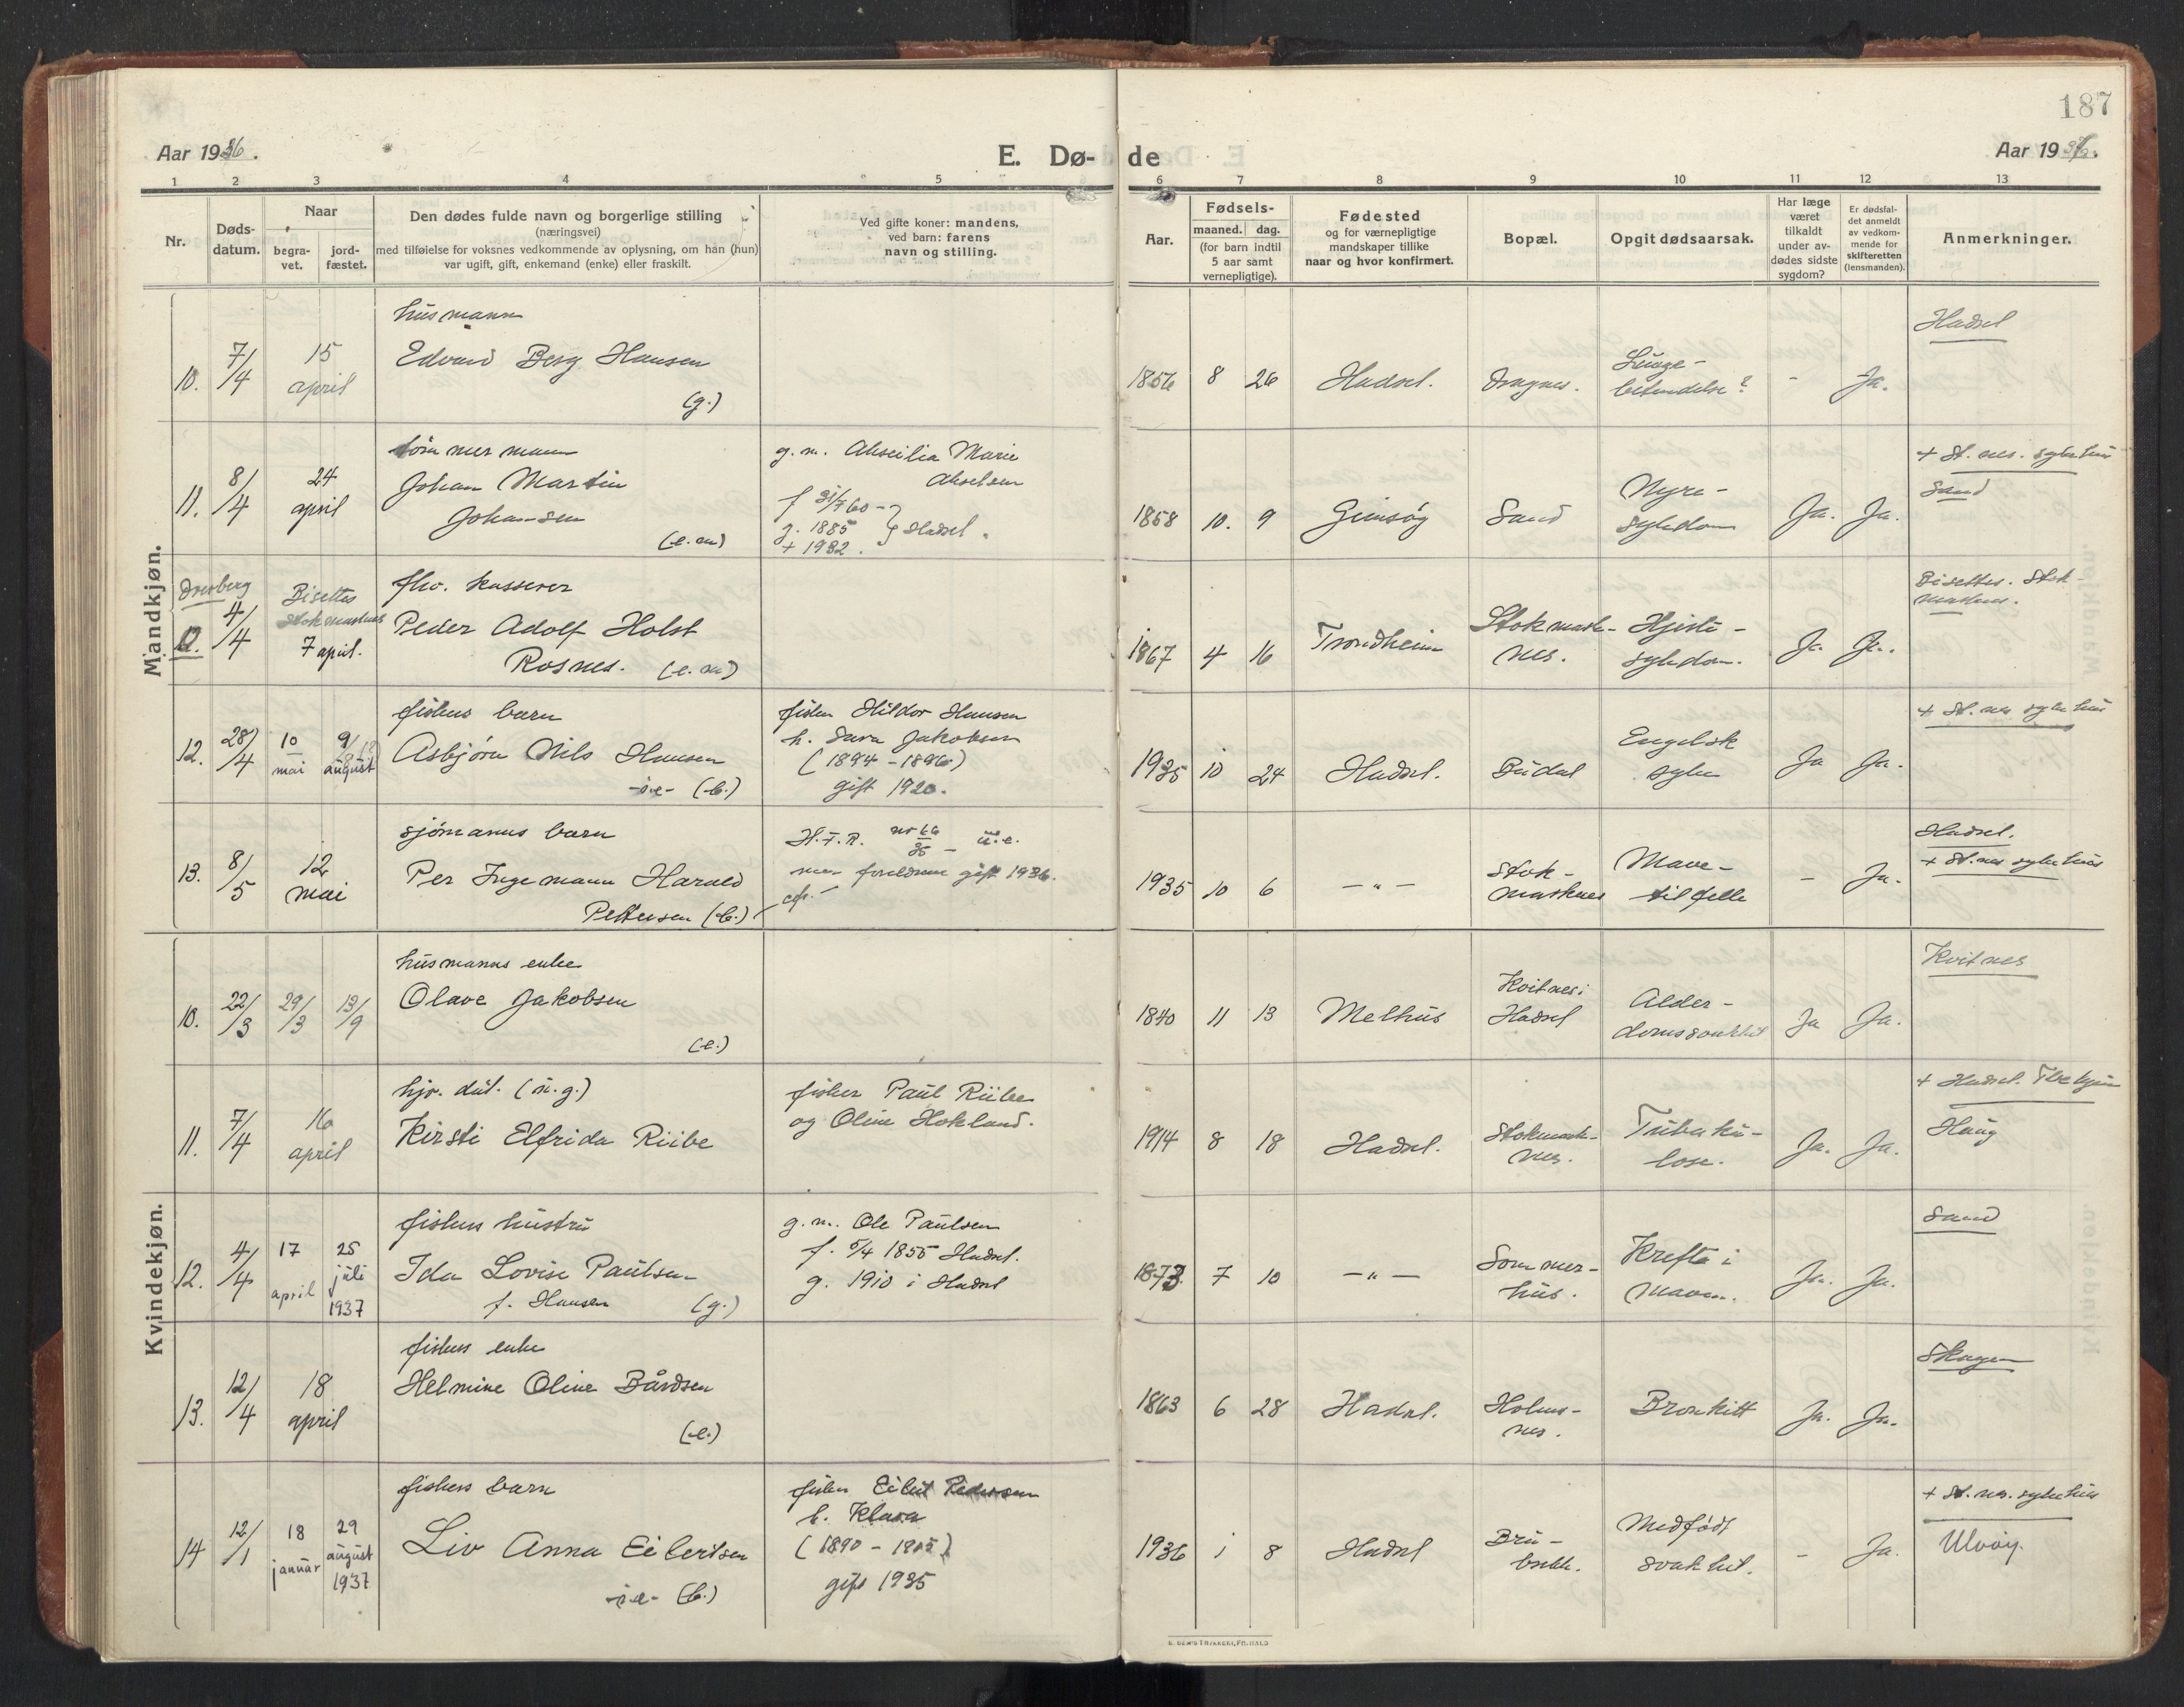 187
Aar 1936.
E. Dø-
de
Aar 1936.
1 2 3 4 5 6 7 8 9 10 11 12 13
Nr.
Døds-
datum.
Naar
begra-
vet.
jord-
fæstet.
Den dødes fulde navn og borgerlige stilling
(næringsvei)
med tilføielse for voksnes vedkommende av oplysning, om han (hun)
var ugift, gift, enkemand (enke) eller fraskilt.
Ved gifte koner: mandens,
ved barn: farens
navn og stilling.
Aar.
Fødsels-
maaned. dag.
(for barn indtil
5 aar samt
vernepligtige).
Fødested
og for værnepligtige
mandskaper tillike
naar og hvor konfirmert.
Bopæl.
Opgit dødsaarsak.
Har læge
været
tilkaldt
under av-
dødes sidste
sygdom?
Er dødsfal-
det anmeldt
av vedkom-
mende for
skifteretten
(lensmanden).
Anmerkninger.
Mandkjøn.
10. 7/4 15
april
husmann
Edvard Berg Hansen
(g.)
1856 8 26 Hadsel.
Lunge-
betendelse?
- Ja.
Hadsel
11. 8/4 24
april
tømmermann
Johan Martin
Johansen
(e.m)
g. m. Marie
f 31/7 60 -
g. 1885
+ 1932.
Hadsel.
1858 10. 9 Gimsøy Sand
Nyre-
sykdom
Ja. Ja.
+ St. nes. sykehus
Sand
12. 4/4
Bisettes
Stokmarknes
7 april.
fhv. kasserer
Peder Adolf Holst
Rosnes. (e.m)
1867 4 16 Trondheim
Stokmark-
nes.
Hjerte-
sykdom.
Ja Ja.
Bisettes. Stok-
marknes.
12. 28/4 10
mai
9/
august
fiskers barn
Asbjørn Nils Hansen
-i.e- (b.)
fisker Hildor Hansen
h. Sara Jakobsen
(1894 - 1896)
gift 1920.
1935 10 24 Hadsel. Budal
Engelsk
syke
Ja Ja.
+ St. nes sykehus
13. 8/5 12
mai
sjømanns barn
Per Ingemann Harald
Pettersen (b.)
H.F.R. nr 66/35 - u.e.
men foreldrene gift 1936.
1935 10 6 - " -
Stok-
marknes
Mave-
tilfelle
- Ja.
Hadsel.
+ St. nes sykehus
Kvindekjøn.
10. 22/3 29/3 13/9
husmanns enke
Olave Jakobsen
(e.)
1840 11 13 Melhus
Kvitnes i
Hadsel
Alder-
domssvakhet
Ja Ja.
Kvitnes
11. 7/4 16
april
hjv. dat. (u.g.)
Kirsti Elfrida Riibe
fisker Paul Riibe
og Oline Hokland.
1914 8 18 Hadsel.
Stokmark-
nes.
Tuberku-
lose.
Ja. Ja.
+ Hadsel.
Haug
12. 4/4 17
april
25
juli
1937
fiskers hustru
Ida Lovise Paulsen
f. Hansen (g.)
g. m. Ole Paulsen
f. 5/4 1855 Hadsel.
g. 1910 i Hadsel
1873 7 10 - " -
Sommer-
hus.
Kreft i
maven.
Ja. Ja.
Sand
13. 12/4 18
april
fiskers enke
Helmine Oline Bårdsen
(e.)
1863 6 28 Hadsel.
Holm-
nes.
Bronkitt
Ja. Ja.
Skagen
14 12/1 18
januar
29
august
1937
fiskers barn
Liv Anna Eibertsen
-i.e- (b.)
fisker Eibert Pedersen
h. Klara
gift 1935
1936 1 8 Hadsel
Medfødt
svakhet.
- Ja.
+ St. nes. sykehus
Ulvøy.